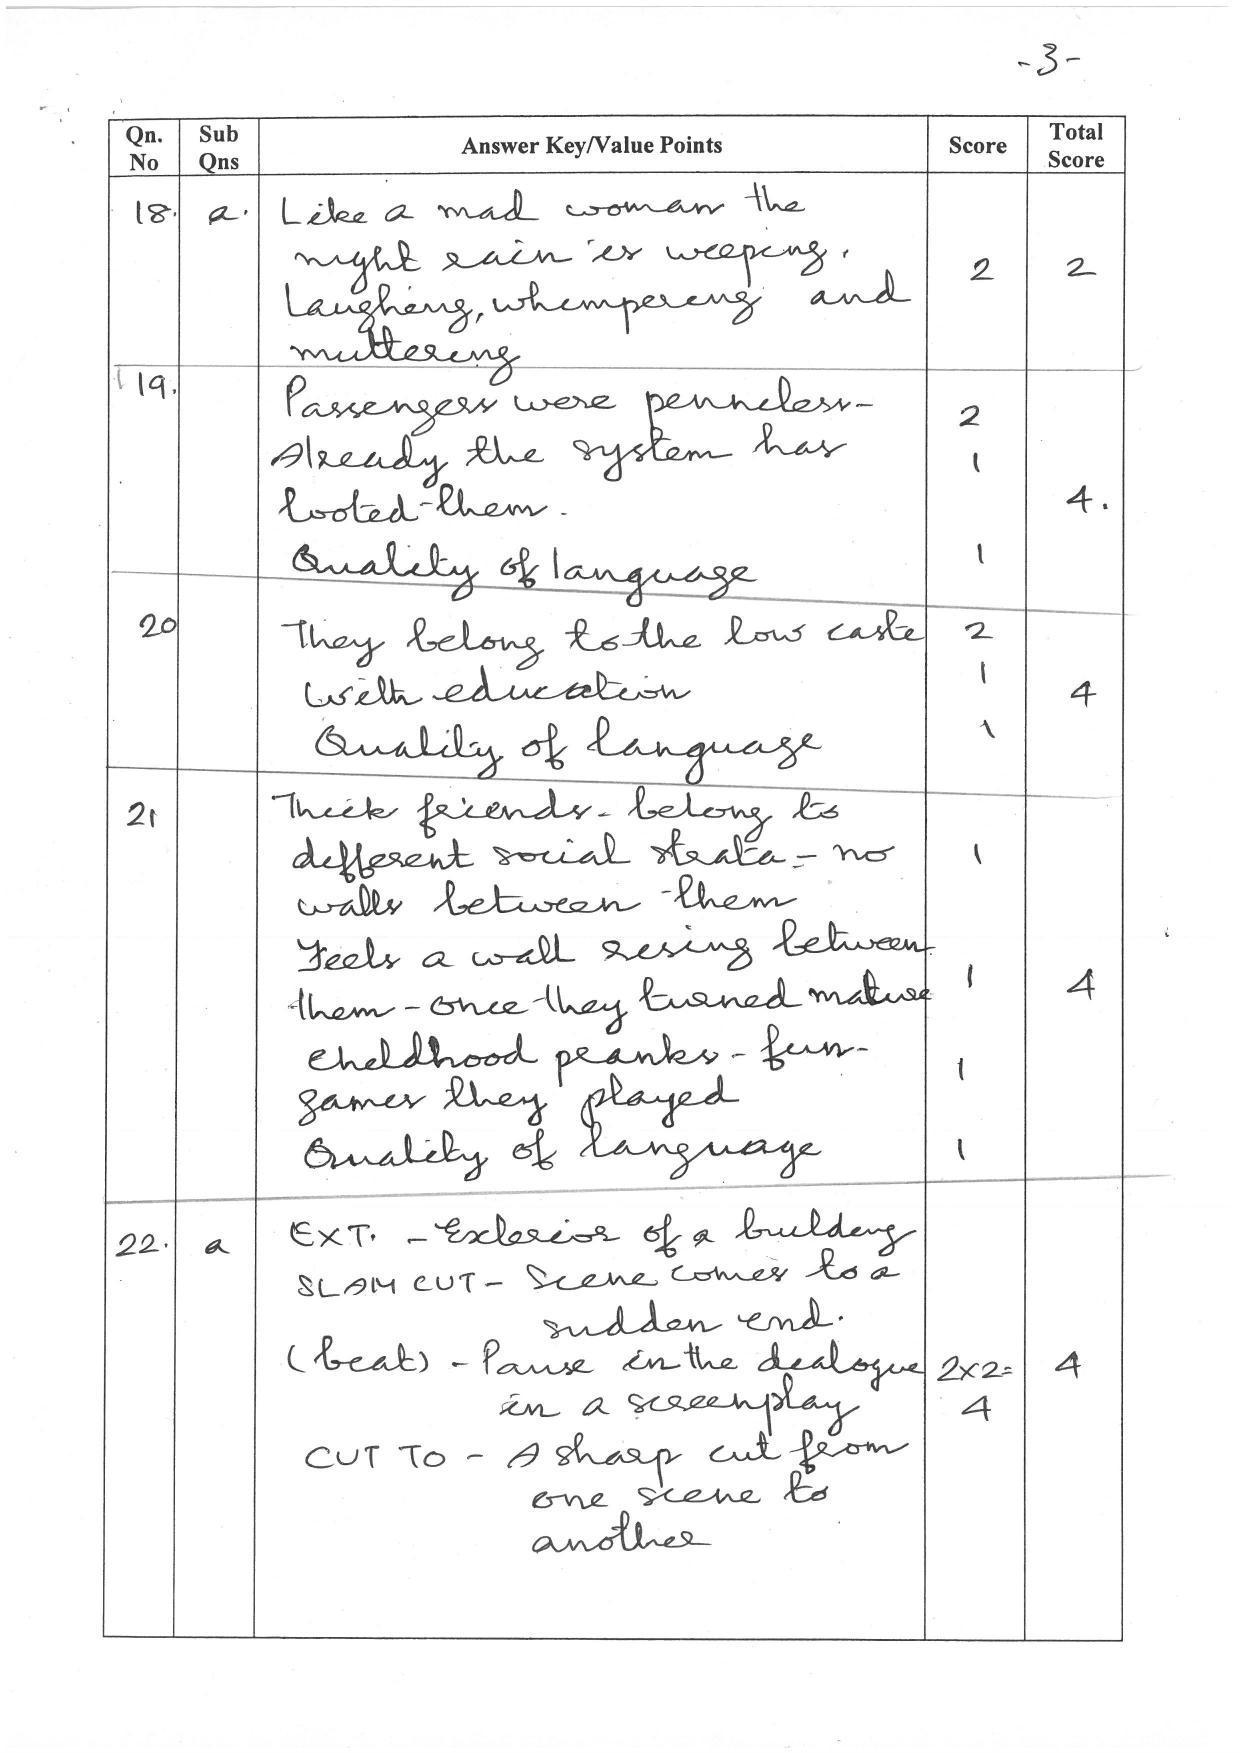 -3-
Qn. No
Sub Qns
Answer Key/Value Points
Score
Total Score
18. a. Like a mad woman the
night rain is weeping,
Laughing, whimpering and 2 2
muttering
19. Passengers were penniless- 2
Already the system has 1
looted them. 4.
Quality of language 1
20 They belong to the low caste 2
with education 1 4
Quality of language 1
21 Thick friends - belong to
different social strata - no 1
walls between them
Feels a wall rising between
them - once they turned mature 1 4
childhood pranks - fun-
games they played 1
Quality of language 1
22. a EXT. - Exterior of a building
SLAM CUT - Scene comes to a
sudden end.
(beat) - Pause in the dialogue 2x2= 4
in a screenplay 4
CUT TO - A sharp cut from
one scene to
another